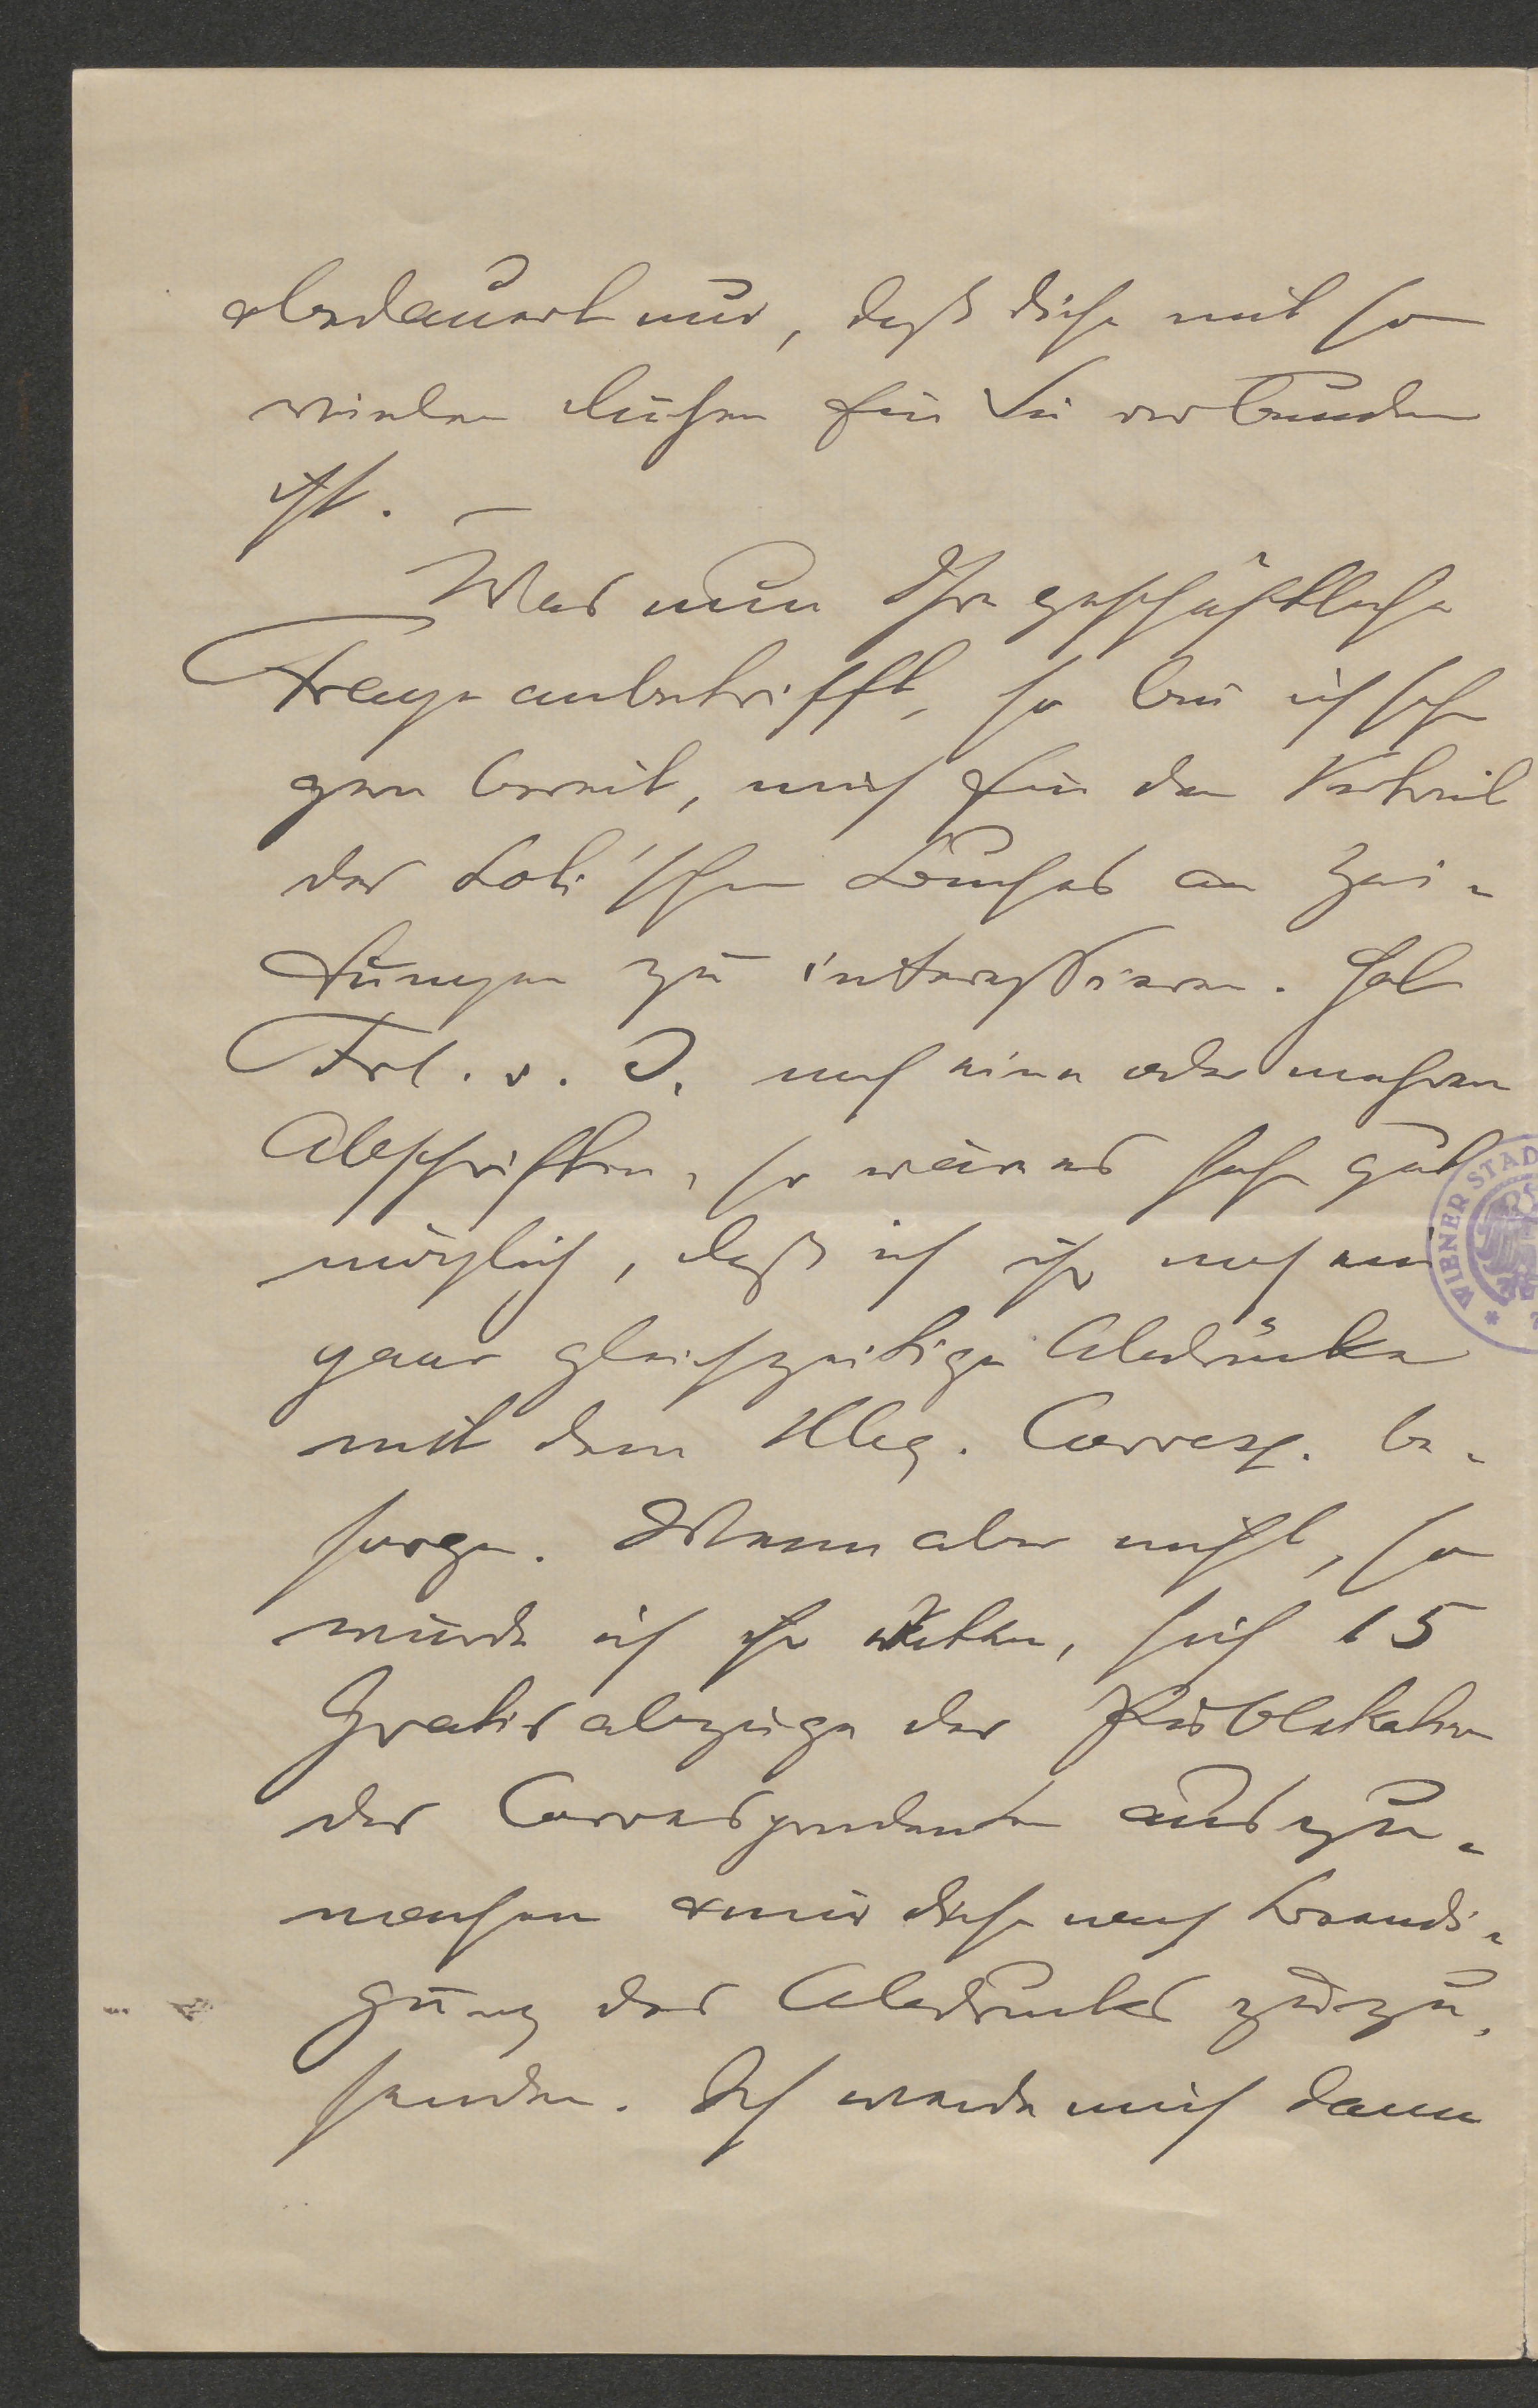 & bedauert nur, daß diese mit so
vielen Mühen für Sie verbunden
ist. –
Was nun Ihre geschäftliche
Frage anbetrifft, so bin ich sehr
gern bereit, mich für den Vertrieb
des Loti'schen Buches an Zei-
tungen zu interessieren. Hat
Frl. v. D. noch eine oder mehrere
Abschriften, so wäre es sehr gut
möglich, daß ich ihr noch ein
paar gleichzeitige Abdrücke
mit dem Ung. Corresp. be-
sorge. Wenn aber nicht, so
würde ich ihr raten, sich 15
Gratisabzüge der Publikation
der Correspondenten auszu-
machen & mir diese nach Beendi-
gung des Abdrucks zuzu-
senden. Ich werde mich dann
WIENER STAD